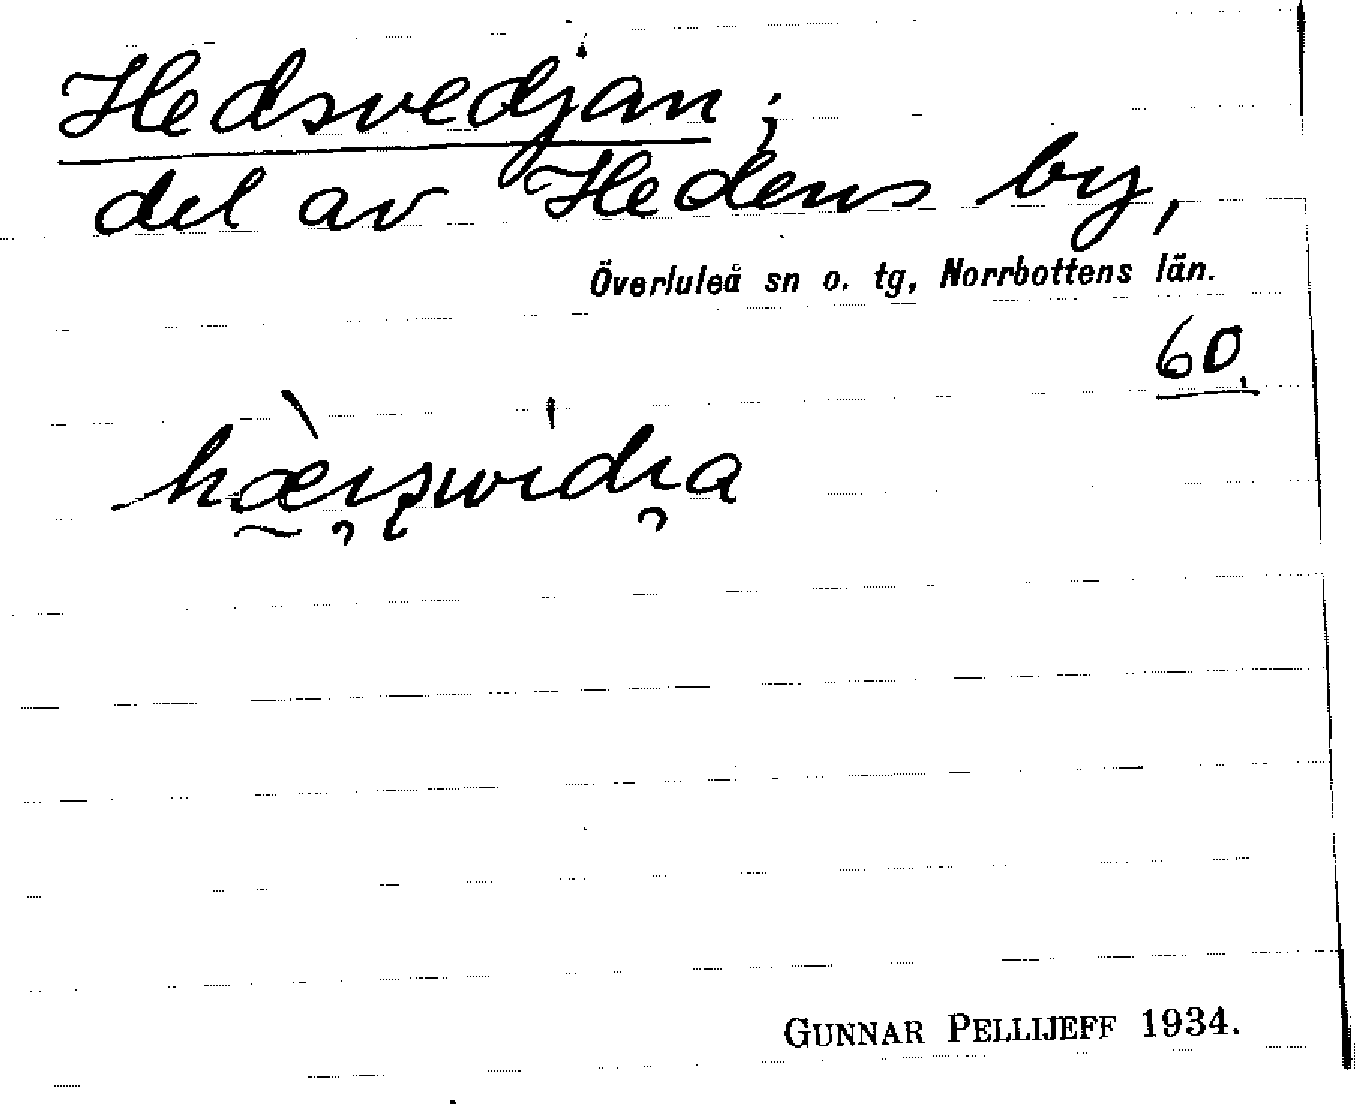 Hedsvedjan;
del av Hedens by,
Överluleå sn o. tg, Norrbottens län.
60.
GUNNAR PELLIJEFF 1934.